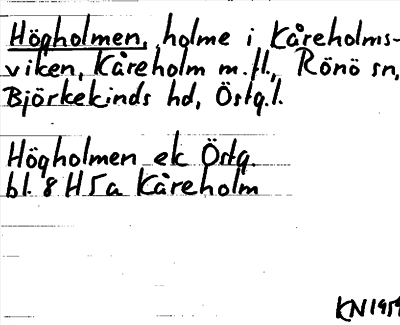 Högholmen, holme i Kåreholms-
viken, Kåreholm m.fl., Rönö sn,
Björkekinds hd, Östg.l.
Högholmen ek Östg.
bl. 8 H 5a Kåreholm
KN 1959